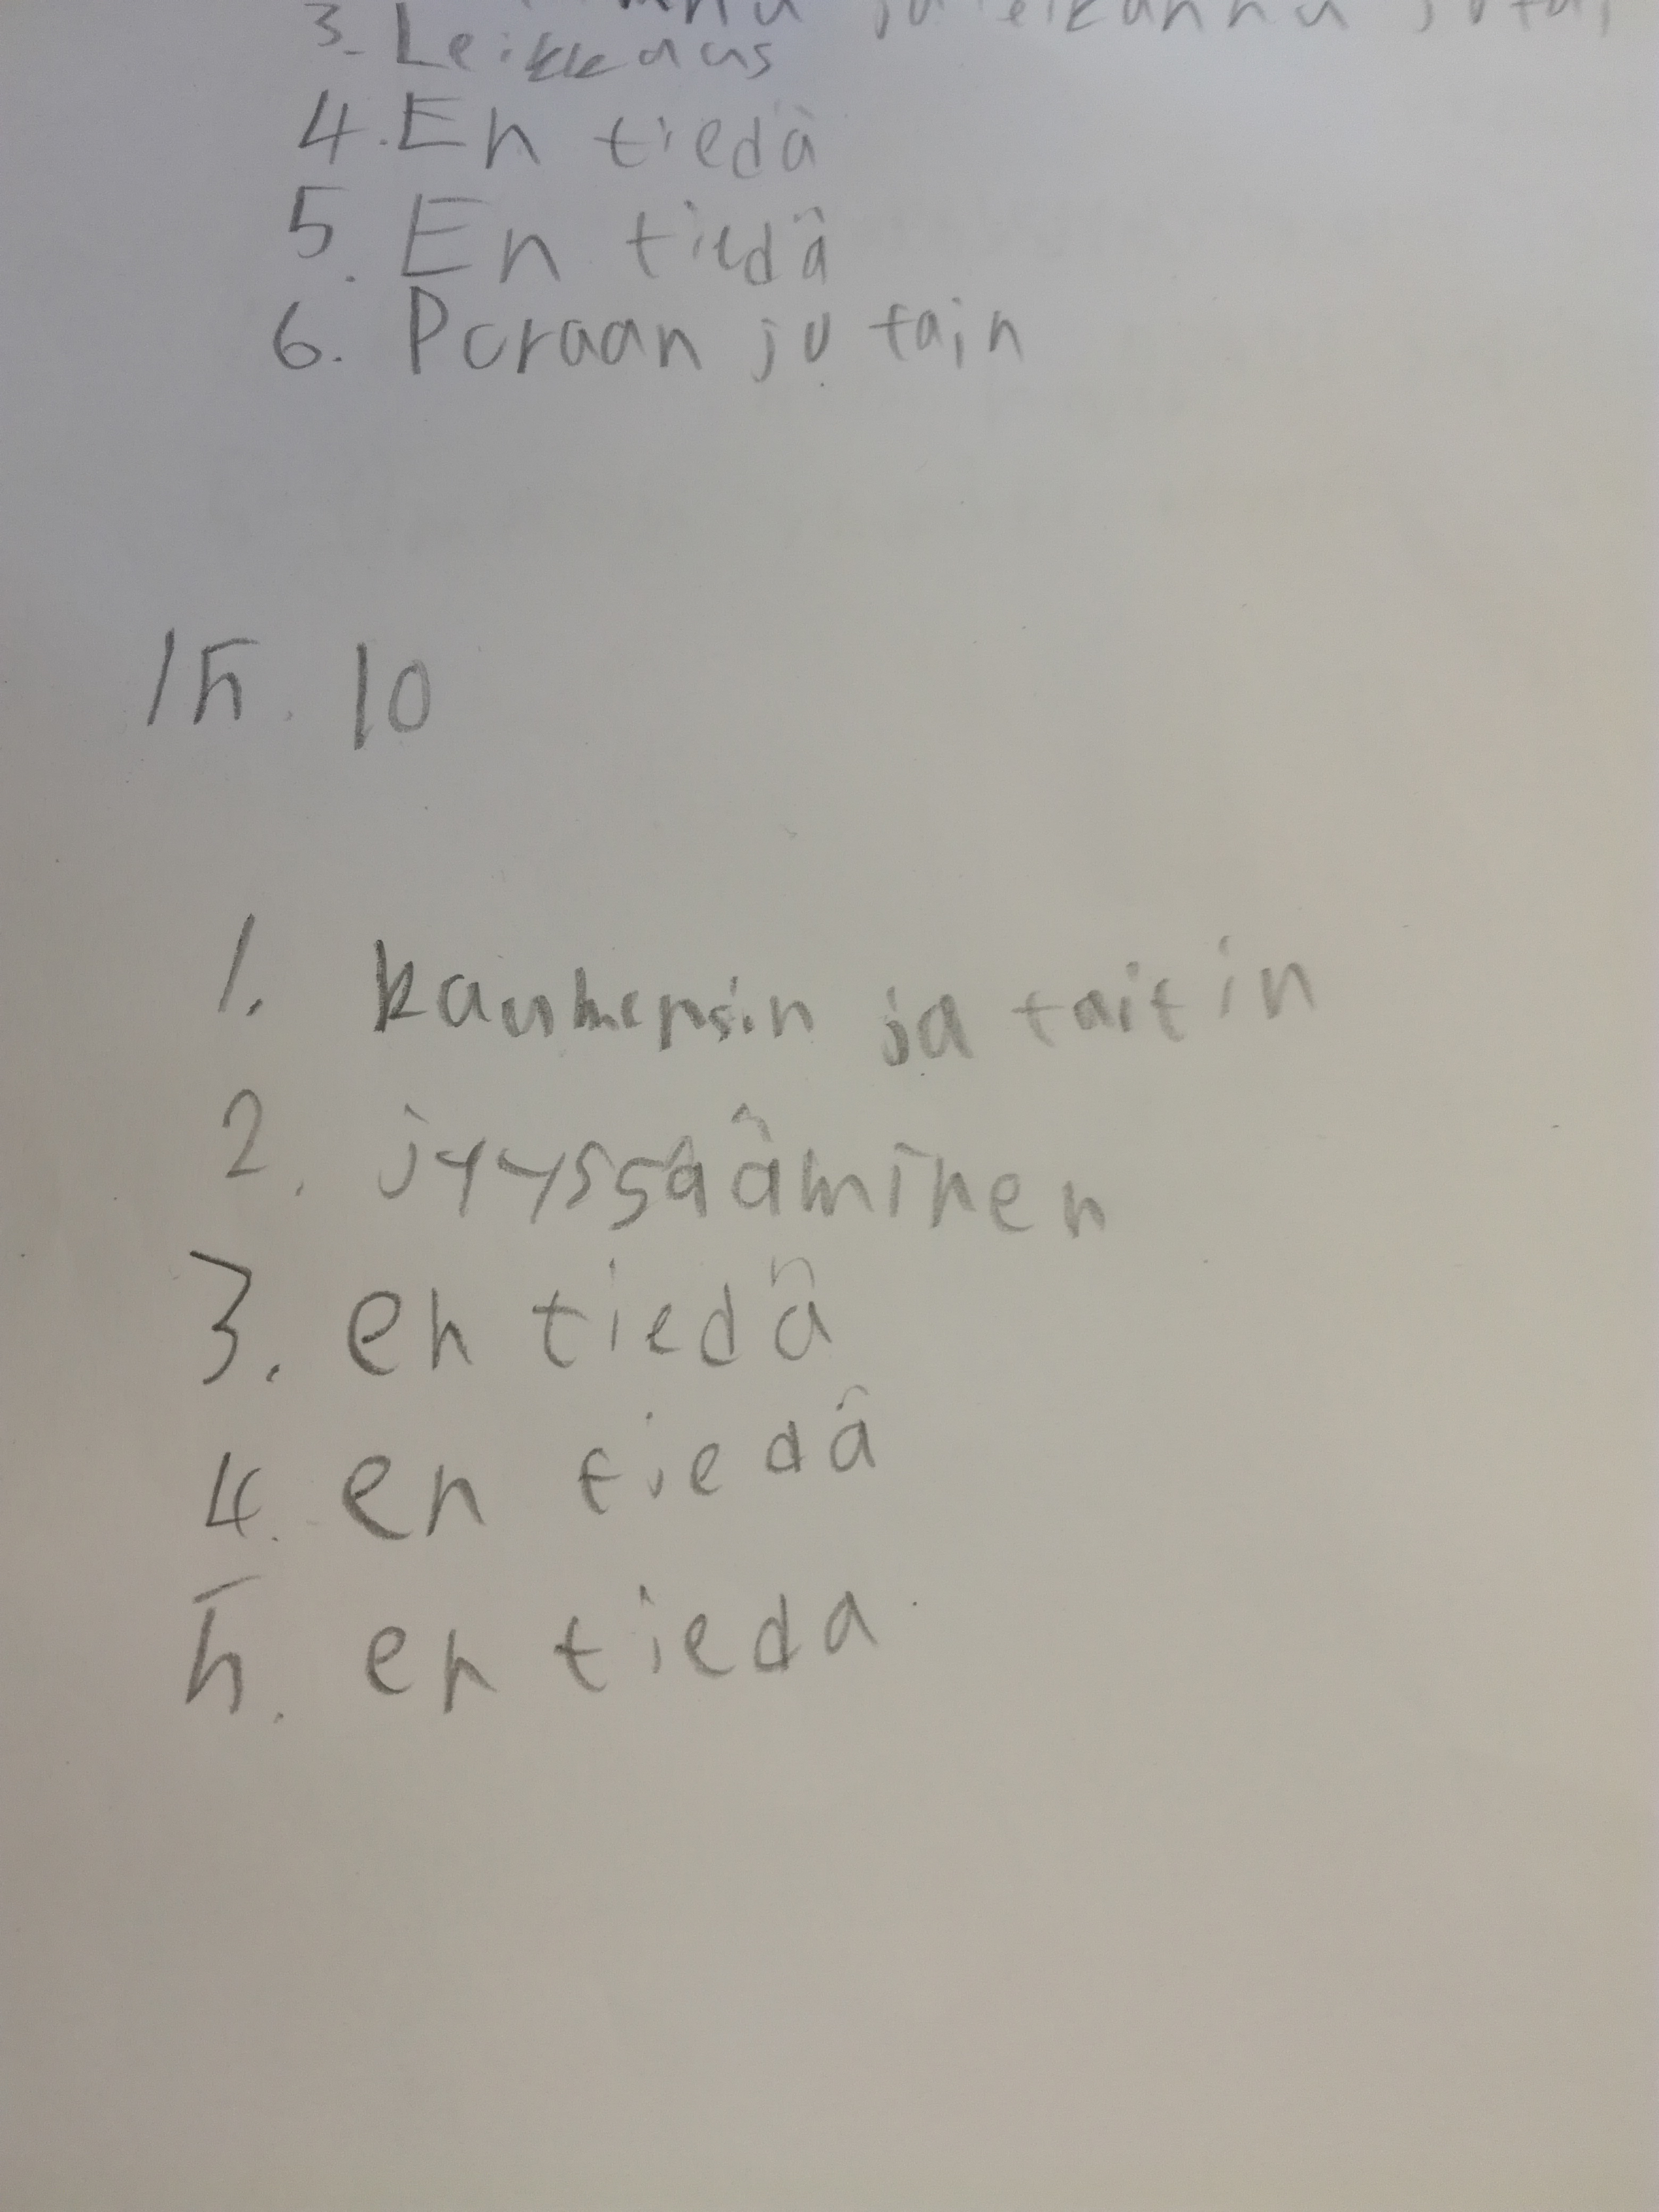 3. Leikkaus
4. En tiedä
5. En tiedä
6. Poraan jo tain
15. 10
1. ja taitin
2. jyyssäâminen
3. en tiedä
4. en tiedä
5. en tieda